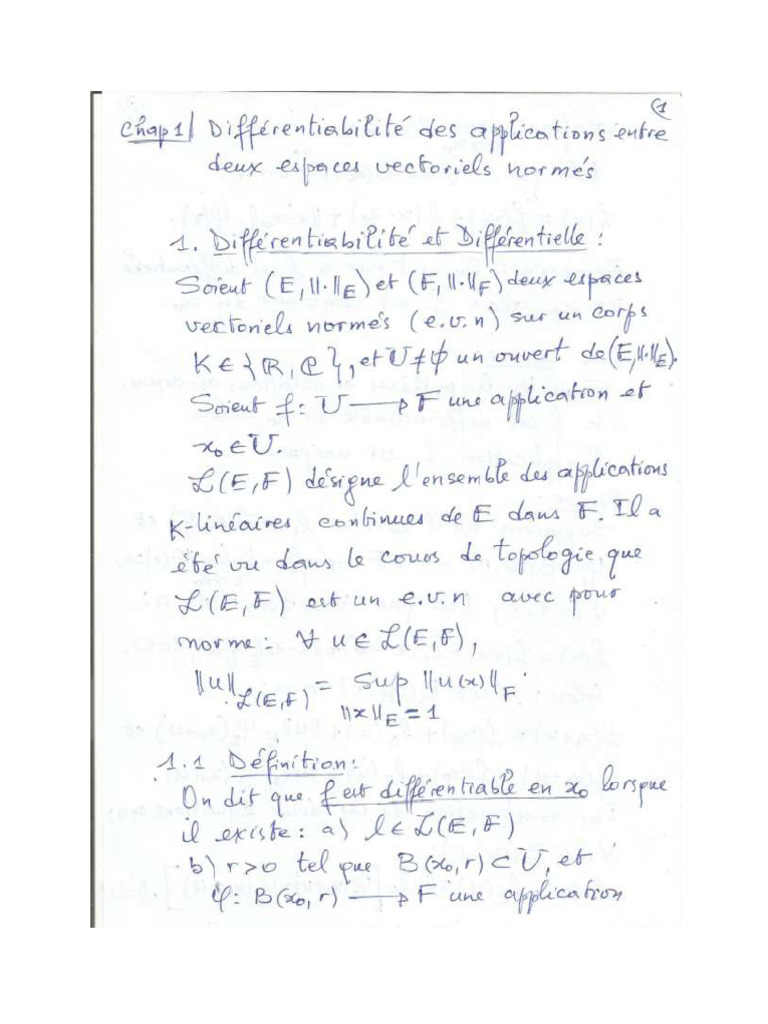 1
Chap 1/ Différentiabilité des applications entre
deux espaces vectoriels normés
1. Différentiabilité et Différentielle :
Soient (E, ||·||_E) et (F, ||·||_F) deux espaces
vectoriels normés (e.v.n) sur un corps
K ∈ {ℝ, ℂ}, et U ≠ ϕ un ouvert de (E, ||·||_E).
Soient f : U → F une application et
x₀ ∈ U.
ℒ(E,F) désigne l'ensemble des applications
K-linéaires continues de E dans F. Il a
été vu dans le cours de topologie, que
ℒ(E,F) est un e.v.n avec pour
norme : ∀ u ∈ ℒ(E,F),
||u||_ℒ(E,F) = Sup ||u(x)||_F.
||x||_E = 1
1.1 Définition :
On dit que f est différentiable en x₀ lorsque
il existe : a) l ∈ ℒ(E,F)
b) r>0 tel que B(x₀,r) ⊂ U, et
φ : B(x₀,r) → F une application